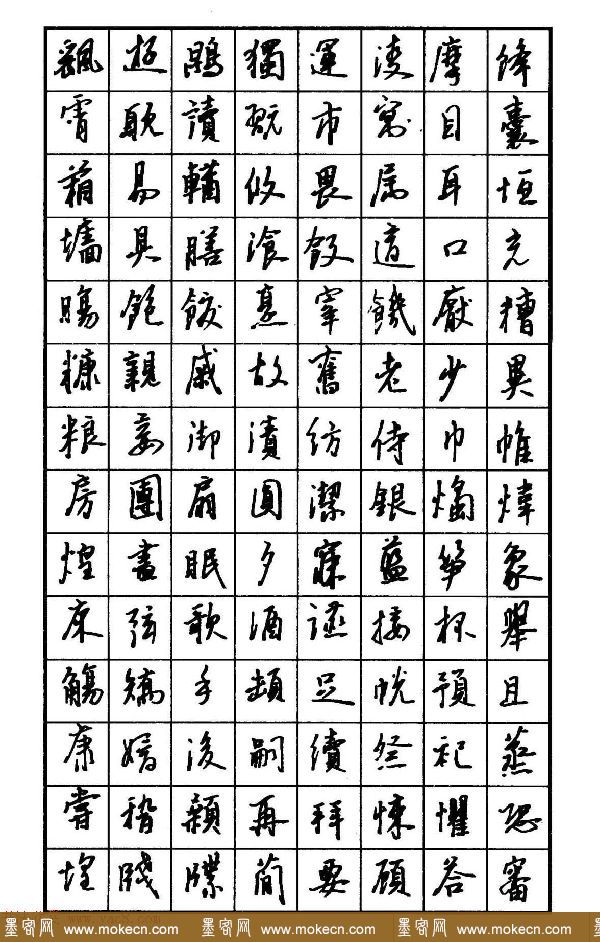 颻遊鵾獨運凌摩絳
霄耽讀翫市寓目囊
箱易輶攸畏属耳垣
墻具膳飡飯適口充
腸飽飫烹宰饑厭糟
糠親戚故舊老少異
粮妾御績紡侍巾帷
房團扇圓潔銀燭煒
煌晝眠夕寐藍筍象
床弦歌酒讌接杯舉
觴矯手頓足悅豫且
康嫡後嗣續祭祀蒸
嘗稽顙再拜悚懼恐
惶牋牒簡要顧答審
墨客网 www.mokecn.com 墨客网 www.mokecn.com 墨客网 www.mokecn.com